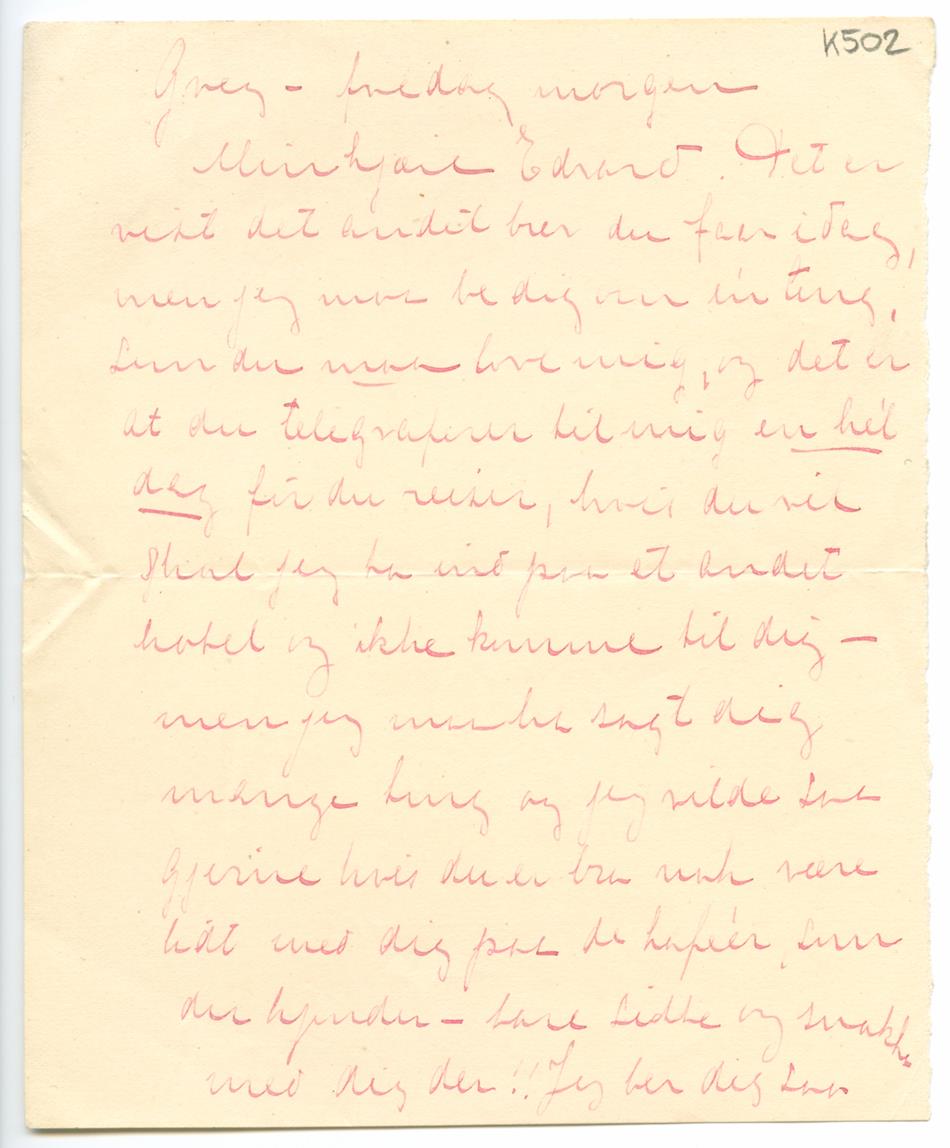 K502
Gvey – fredag morgen
Min kjære Edvard. Det er
vist det andet brev du faar idag,
men jeg maa be dig om én ting,
som du maa love mig, og det er
at du telegraferer til mig en hél
dag før du reiser, hvis du vil
skal jeg ta ind paa et andet
hotel og ikke komme til dig –
men jeg maa ha sagt dig
mange ting og jeg vilde saa
gjerne hvis du er bra nok være
lidt med dig paa de kaféer, som
du kjender – bare sidde og snakke
med dig der!! Jeg ber dig saa